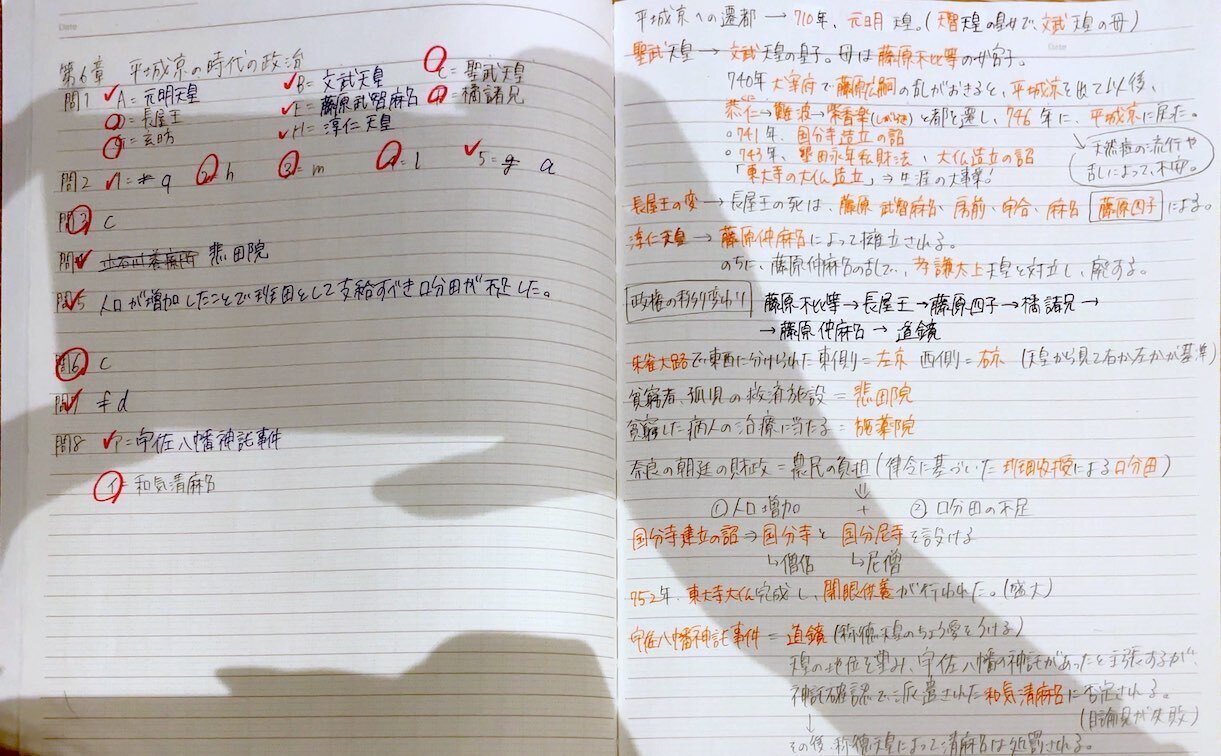 Date
第6章 平城京の時代の政治
問1 A=元明天皇 B=文武天皇 C=聖武天皇
D=長屋王 E=藤原武智麻呂 F=橘諸兄
G=玄昉 H=淳仁天皇
問2 1= q 2= h 3= m 4= l 5= a
問3 c
問4 悲田院
問5 人口が増加したことで班田として支給すべき口分田が不足した。
問6 c
問7 d
問8 ア=宇佐八幡神託事件
イ=和気清麻呂
Date
平城京への遷都 → 710年、元明天皇。(天智天皇の皇女で、文武天皇の母)
聖武天皇 → 文武天皇の皇子。母は藤原不比等の女宮子。
740年大宰府で藤原広嗣の乱がおきると、平城京を出て以後、
恭仁→難波→紫香楽(しがらき)と都を遷し、746年に、平城京に戻った。
○741年、国分寺造立の詔
○743年、墾田永年私財法、大仏造立の詔
「東大寺の大仏造立」→生涯の大事業!
天然痘の流行や
乱によって、不安。
長屋王の変 → 長屋王の死は、藤原 武智麻呂、房前、宇合、麻呂 藤原四子 による。
淳仁天皇 → 藤原仲麻呂によって擁立される。
のちに、藤原仲麻呂の乱で、孝謙太上天皇と対立し、廃する。
政権の移り変わり 藤原不比等→長屋王→藤原四子→橘諸兄→
→藤原仲麻呂→道鏡
朱雀大路で東西に分けられた東側=左京 西側=右京 (天皇から見て右か左かが基準)
貧窮者、孤児の救済施設 = 悲田院
貧窮した病人の治療に当たる = 施薬院
奈良の朝廷の財政 = 農民の負担(律令に基づいた班田収授による口分田)
①人口増加 + ②口分田の不足
国分寺建立の詔 ⇒ 国分寺と国分尼寺を設ける
↳僧侶 ↳尼僧
752年、東大寺大仏完成し、開眼供養が行われた。(盛大)
宇佐八幡神託事件 = 道鏡(称徳天皇のちょう愛をうける)
天皇の地位を望み、宇佐八幡の神託があったと主張するが、
神託確認で派遣された和気清麻呂に否定される。
(目論見が失敗)
その後、称徳天皇によって清麻呂は処罰される。